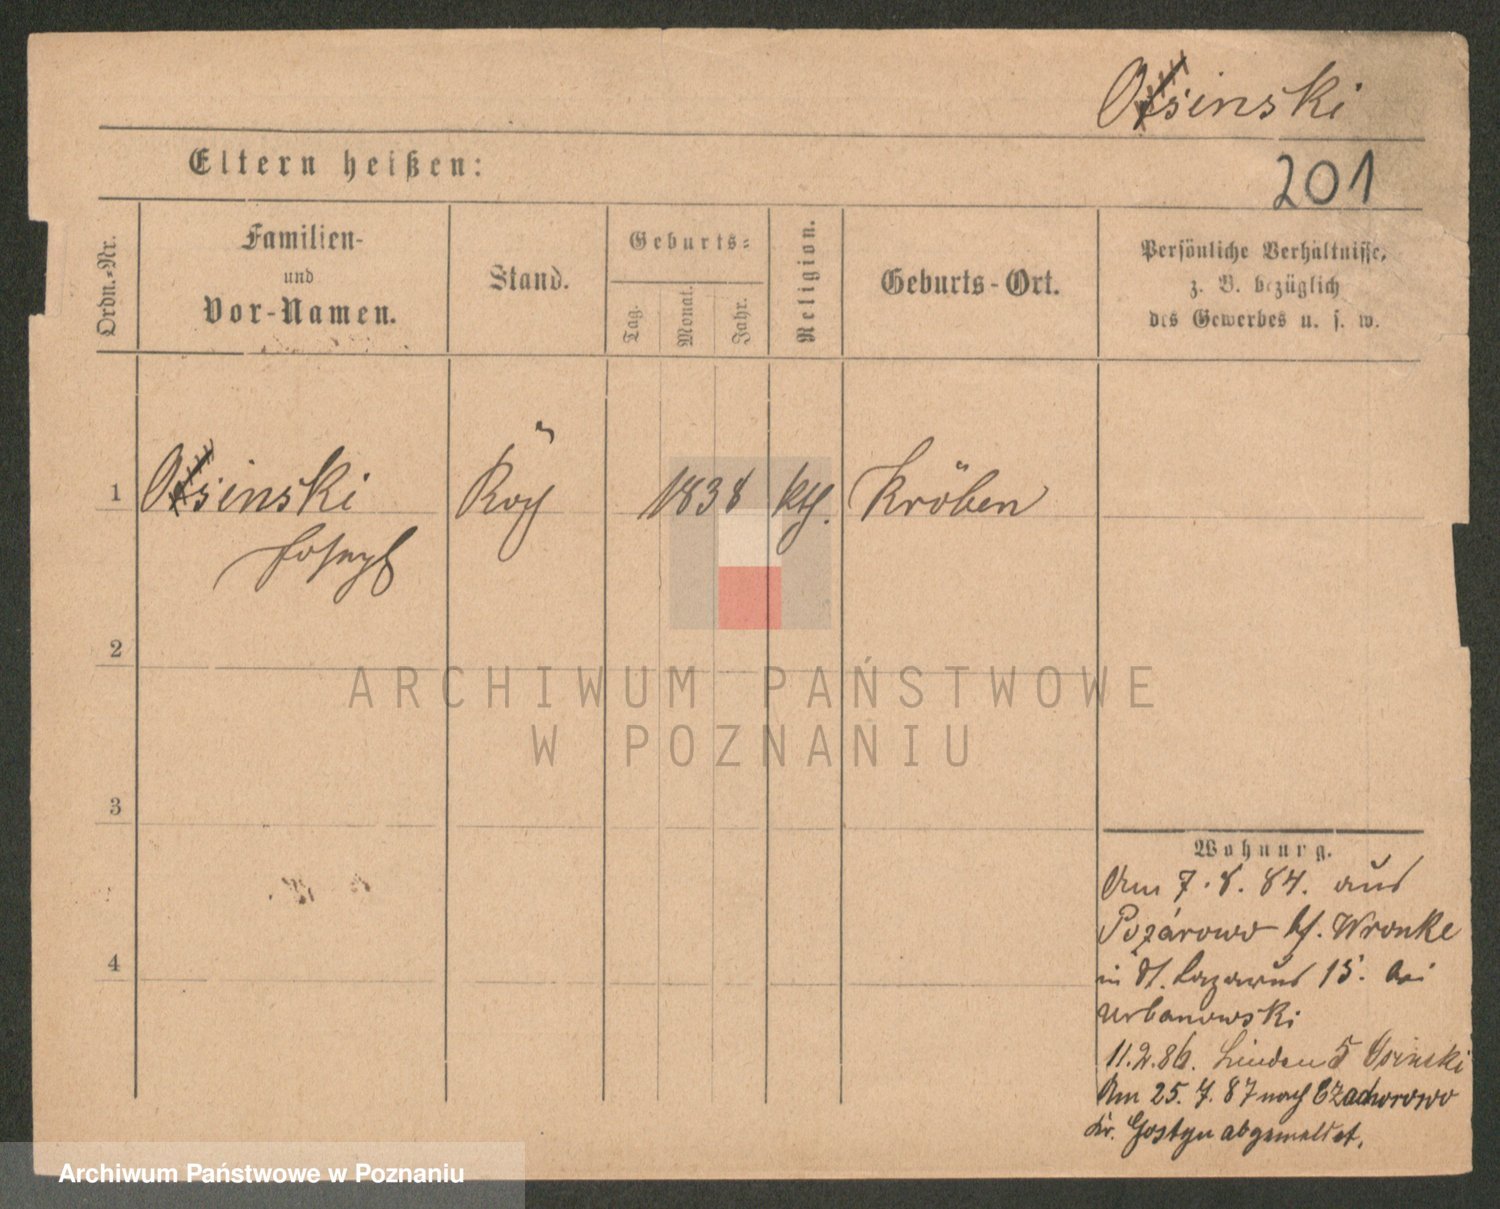 Osinski
201
Eltern heißen:
Ordn.-Nr.
Familien-
und
Vor-Namen.
Stand.
Geburts-
Tag.
Monat.
Jahr.
Religion.
Geburts-Ort.
Persönliche Verhältnisse,
z. B. bezüglich
des Gewerbes u. s. w.
1
Osinski
Joseph
Koch
1838
kth.
Kröben
2
3
4
Wohnung.
Am 7. 8. 84. aus
Pozarowo bf. Wronke
in St. Lazarus 15. bei
Urbanowski
11.2.86. Linden 5
Am 25. 7. 87 nach Czachorowo
Kr. Gostyn abgemeldet.
ARCHIWUM PAŃSTWOWE
W POZNANIU
Archiwum Państwowe w Poznaniu